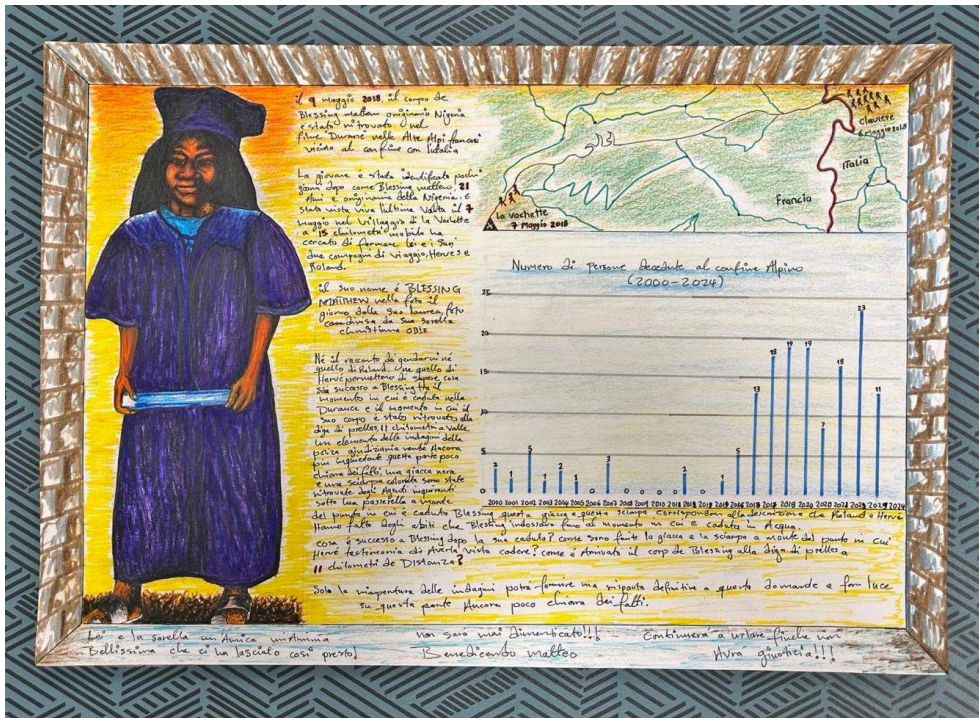 il 9 maggio 2018 il corpo de
Blessing originario Nigeria
è stato ritrovato nel
nelle Alte Alpi francesi
vicino al confine con l'italia
La giovane è stata identificata pochi
giorni dopo come Blessing mattew, 21
Anni e originaria della Nigeria. È
stata vista viva l'ultima volta il 7
maggio nel Villaggio di la Vachette
a 15 chilometri mobile ha
cercato di fermare lei e i suoi
due compagni di viaggio, Herve e
Roland.
il suo nome è BLESSING
MATTHEW nella foto il
giorno della sua laurea, foto
condivisa da sua sorella
christiana OBIE.
Né il racconto dei gendarmi né
quello di Roland, ne quello di
Herve permettono di sapere cosa
sia successo a Blessing tra il
momento in cui è caduta nella
Durance e il momento in cui il
suo corpo è stato ritrovato alla
diga di prelles, 11 chilometri a valle
un elemento delle indagini della
polizia giudiziaria rende Ancora
più inquietante questa parte poco
chiara dei fatti, una giacca nera
e una sciarpa colorata sono state
ritrovate dagli Agenti inquirenti
sotto una passerella a monte
del punto in cui è caduto Blessing questa giacca e questa sciarpa corrispondono alla descrizione che Roland e Hervé
Hanno fatto degli abiti che Blessing indossava fino al momento in cui è caduta in Acqua.
cosa è successo a Blessing dopo la sua caduta? come sono finite la giacca e la sciarpa a monte del punto in cui
Hervé testimonia di Averla vista cadere? come è Arrivato il corpo de Blessing alla diga di prelles a
11 chilometri de Distanza?
Solo la riapertura delle indagini potrà fornire una risposta definitiva a queste domande e far luce
su questa parte Ancora poco chiara dei fatti.
claviere
6 maggio 2018
italia
Francia
la vachette
7 Maggio 2018
Numero di persone decedute al confine Alpino
(2000-2024)
25
20
15
10
5
0
2 1 5 1 2 1 3 2 1 5 13 18 19 19 7 15 23 11
2000 2001 2002 2003 2004 2005 2006 2007 2008
2023 2024
Lei è la sorella un Amica un Anima
Bellissima che ci ha lasciato così presto!
non sarò mai dimenticato!!!
Benedicendo matteo
Continuerà a urlare finche non
Avrà giustizia!!!